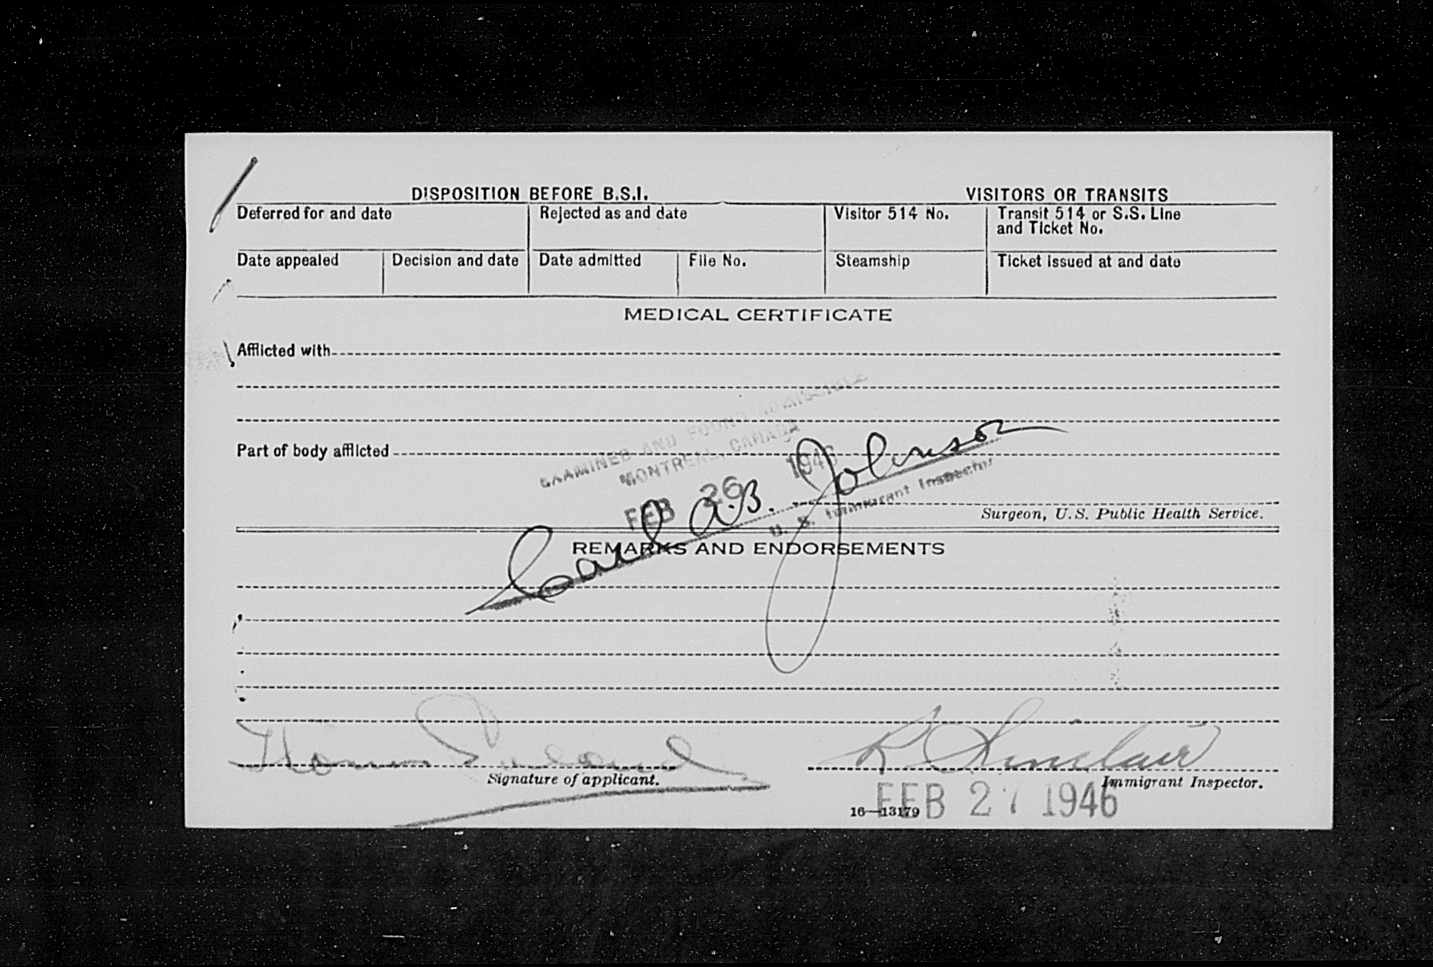 DISPOSITION BEFORE B.S.I. VISITORS OR TRANSITS
Deferred for and date Rejected as and date Visitor 514 No. Transit 514 or S.S. Line
and Ticket No.
Date appealed Decision and date Date admitted File No. Steamship Ticket issued at and date
MEDICAL CERTIFICATE
Afflicted with
EXAMINED AND FOUND ADMISSIBLE
MONTREAL, CANADA
Part of body afflicted
FEB 26 1946
Carl A.B. Johnson
U. S. Immigrant Inspector
Surgeon, U.S. Public Health Service.
REMARKS AND ENDORSEMENTS
Thomas R Sinclair
Signature of applicant. Immigrant Inspector.
16—13179 FEB 27 1946